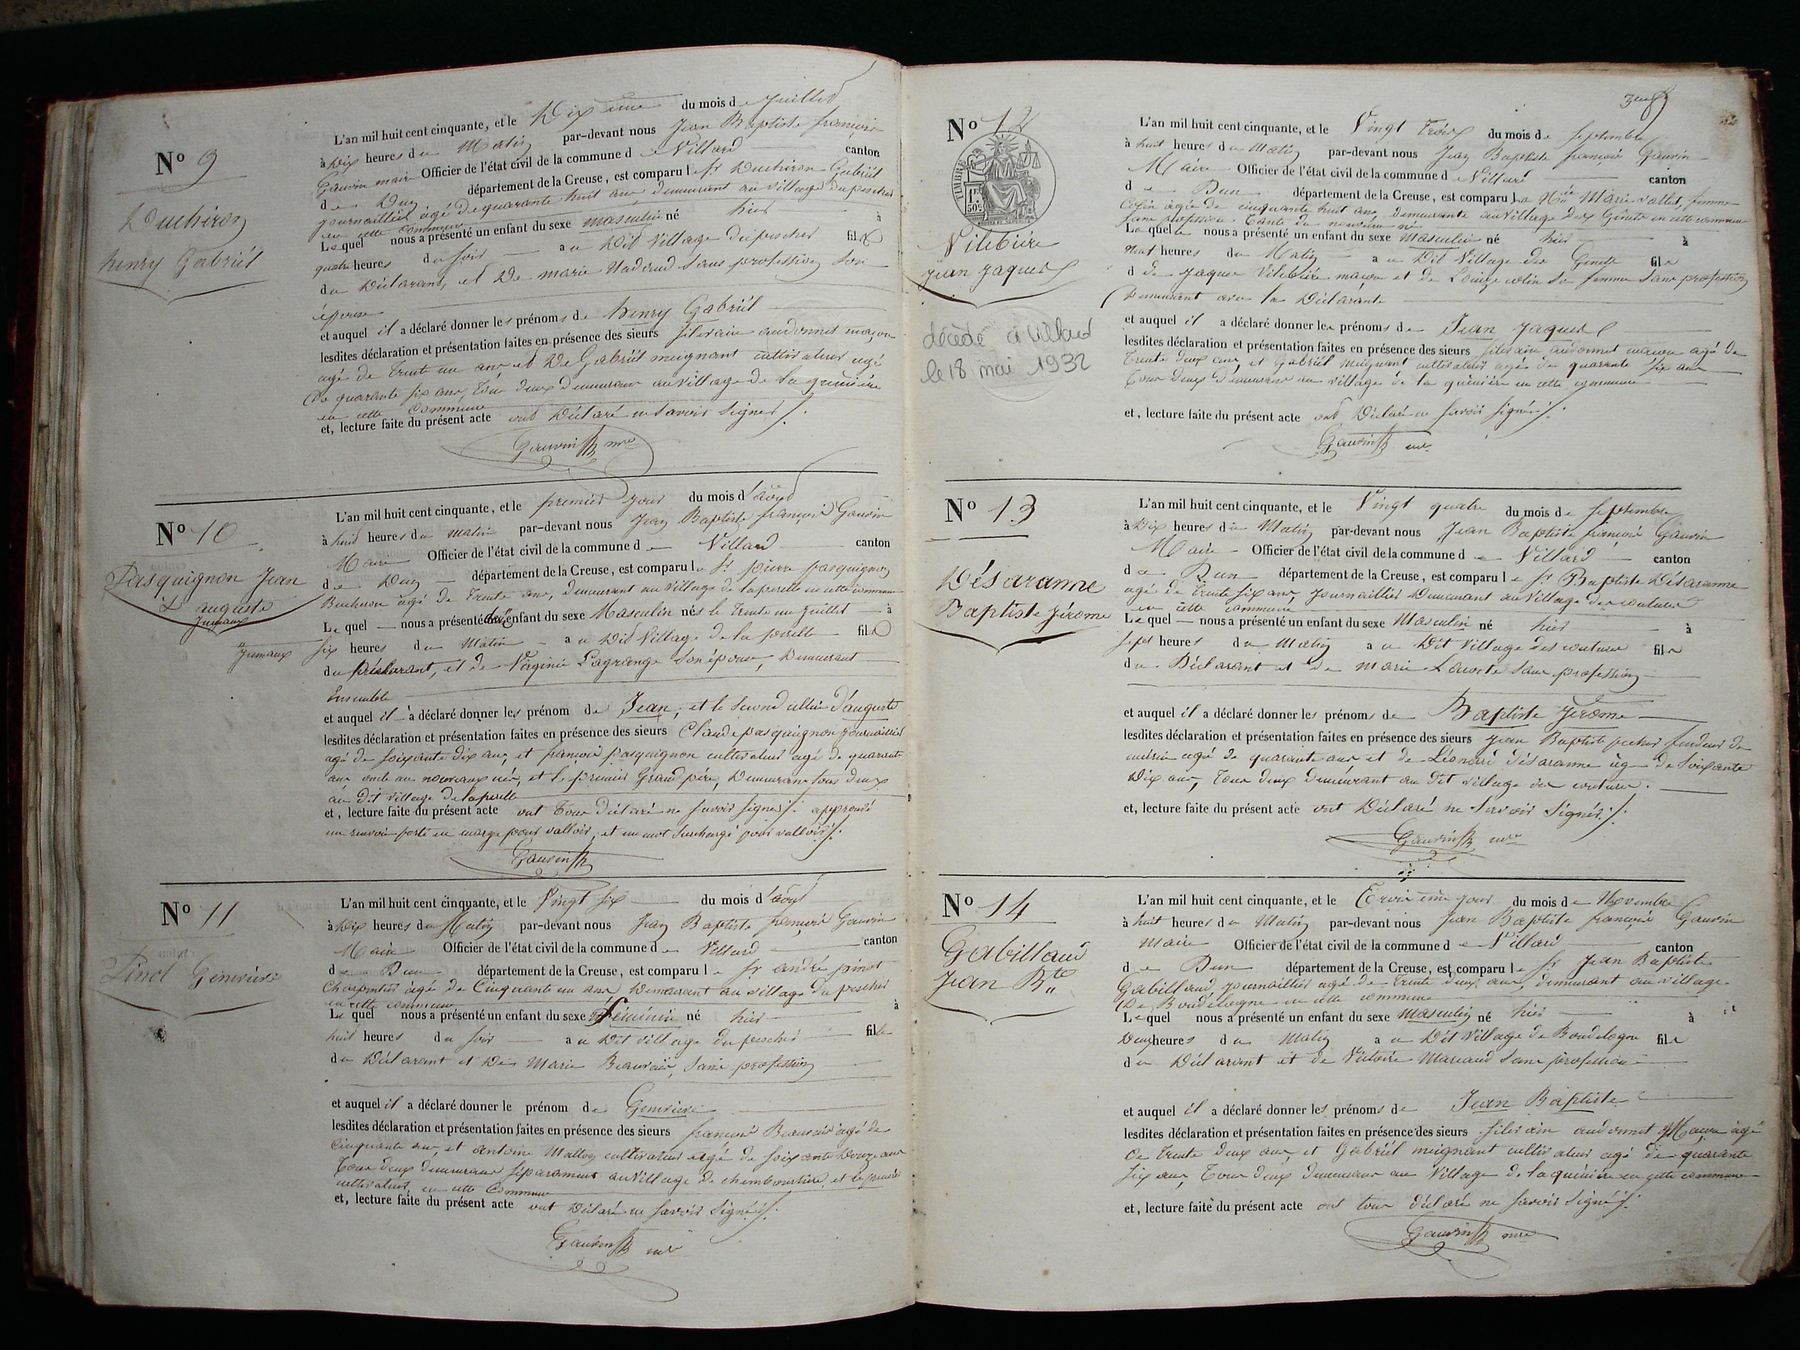 N° 9
Duchiron
henry Gabriël
L'an mil huit cent cinquante, et le Dixième du mois de Juillet
à Dix heures du Matin par-devant nous Jean Baptiste françois
Gauvin maire Officier de l'état civil de la commune de Villard canton
de Dun département de la Creuse, est comparu le Sr Duchiron Gabriël
journaillier agé de quarante huit ans demeurant au village du pescher
en cette commune
Lequel nous a présenté un enfant du sexe masculin né hier à
quatre heures du soir au Dit village du pescher fils
du Déclarant, et De marie Nadaud Sans profession Son
épouse
et auquel il a déclaré donner les prénoms de henry Gabriël
lesdites déclaration et présentation faites en présence des sieurs Silvain audonnet maçon
agé de Trente un ans et De Gabriël meignant cultivateur agé
De quarante six ans, Tou Deux Demeurans au village de la
en cette commune
et, lecture faite du présent acte ont Déclaré ne Savoir Signer
Gauvin mre
N° 10
Pasquignon Jean
& auguste
Jumaux
Jumaux
L'an mil huit cent cinquante, et le premier jour du mois d'aôut
à huit heures du matin par-devant nous Jean Baptiste françois Gauvin
Maire Officier de l'état civil de la commune de Villard canton
de Dun département de la Creuse, est comparu le Sr pierre pasquignon
Bucheron agé de Trente ans, demeurant au village de laperelle en cette commune
Le quel nous a présenté deux enfant du sexe Masculin nés le Trente un Juillet à
six heures du Matin au Dit Village de la perelle fils
du Déclarant, et de Virginie Lagrange Son épouse, Demeurant
Ensemble
et auquel il a déclaré donner les prénom de Jean, et le Second celui d'auguste
lesdites déclaration et présentation faites en présence des sieurs Claude pasquignon journaillier
agé de Soixante Dix ans, et françois pasquignon cultivateur agé de quarante
ans oncle au nouveaux nés, et le premier Grand père, Demeurans tous deux
au Dit village de laperelle
et, lecture faite du présent acte ont Tous déclaré ne Savoir Signer approuvé
un renvoi porté en marge pour valloir, et un mot Surchargé pour valloir
Gauvin
N° 11
Pinot Genevieve
L'an mil huit cent cinquante, et le Vingt six du mois d'aôut
à Dix heures du Matin par-devant nous Jean Baptiste françois Gauvin
Maire Officier de l'état civil de la commune de Villard canton
de Dun département de la Creuse, est comparu le Sr andré pinot
Charpentier agé de Cinquante un ans Demeurant au village du pescher
en cette commune
Le quel nous a présenté un enfant du sexe Féminin né hier à
huit heures du soir au Dit village du pescher fille
du Déclarant et De Marie Beauvais, Sans profession
et auquel il a déclaré donner le prénom de Genevieve
lesdites déclaration et présentation faites en présence des sieurs françois Beauvais agé de
Cinquante ans, et antoine Mallet cultivateur agé de Soixante Douze ans
Tous deux demeurans Séparament au village de chemboursière, et le premier
cultivateur, en cette Commune
et, lecture faite du présent acte ont Déclaré ne Savoir Signer
Gauvin mre
N° 12
TIMBRE
1F. 50c.
Vilebière
Jean Jaques
décédé à Villard
le 18 mai 1932
L'an mil huit cent cinquante, et le Vingt Trois du mois de Septembre
à huit heures du Matin par-devant nous Jean Baptiste françois Gauvin
Maire Officier de l'état civil de la commune de Villard canton
de Dun département de la Creuse, est comparu la Marie vallet, femme
Colin agée de cinquante huit ans, Demeurante au village des Genets en cette commune
Sans profession Tante du nouveau né
Laquelle nous a présenté un enfant du sexe Masculin né hier à
heures du Matin au Dit Village des Genets fils
de Jaques Vilebière maçon et de Louize colin Sa femme Sans profession
Demeurant avec la Déclarante
et auquel il a déclaré donner les prénoms de Jean Jaques
lesdites déclaration et présentation faites en présence des sieurs Silvain audonnet maçon agé de
Trente deux ans, et Gabriël meignant cultivateur agé de quarante Six ans
Tous deux demeurans au village de la en cette commune
et, lecture faite du présent acte ont Déclaré ne Savoir Signer
Gauvin mre
N° 13
Désaranne
Baptiste Jérome
L'an mil huit cent cinquante, et le Vingt quatre du mois de Septembre
à Dix heures du Matin par-devant nous Jean Baptiste françois Gauvin
Maire Officier de l'état civil de la commune de Villard canton
de Dun département de la Creuse, est comparu le Sr Baptiste Désaranne
agé de Trente Six ans, Journaillier Demeurant au Village des coutures
en cette commune
Le quel nous a présenté un enfant du sexe Masculin né hier à
Sept heures du Matin au Dit Village des coutures fils
du Déclarant et de Marie Sans profession
et auquel il a déclaré donner les prénoms de Baptiste Jérome
lesdites déclaration et présentation faites en présence des sieurs Jean Baptiste
agé de quarante ans et de Léonard Désaranne agé de Soixante
Dix ans, Tous deux demeurant au Dit village des coutures.
et, lecture faite du présent acte ont Déclaré ne Savoir Signer
Gauvin mre
N° 14
Gabillaud
Jean Bte
L'an mil huit cent cinquante, et le Troisième jour du mois de Novembre
à huit heures du Matin par-devant nous Jean Baptiste françois Gauvin
Maire Officier de l'état civil de la commune de Villard canton
de Dun département de la Creuse, est comparu le Sr Jean Baptiste
Gabillaud, journaillier agé de Trente deux ans, demeurant au village
De Boudélogne en cette commune
Le quel nous a présenté un enfant du sexe masculin né hier à
Deux heures du Matin au Dit Village de Boudelogne fils
du Déclarant et de Victoire Marcaud Sans profession
et auquel il a déclaré donner les prénoms de Jean Baptiste
lesdites déclaration et présentation faites en présence des sieurs Silvain audonnet Maçon agé
De Trente deux ans, et Gabriël meignant cultivateur agé de quarante
Six ans, Tous deux demeurans au Village de la en cette commune
et, lecture faite du présent acte ont tous déclaré ne Savoir Signer
Gauvin mre